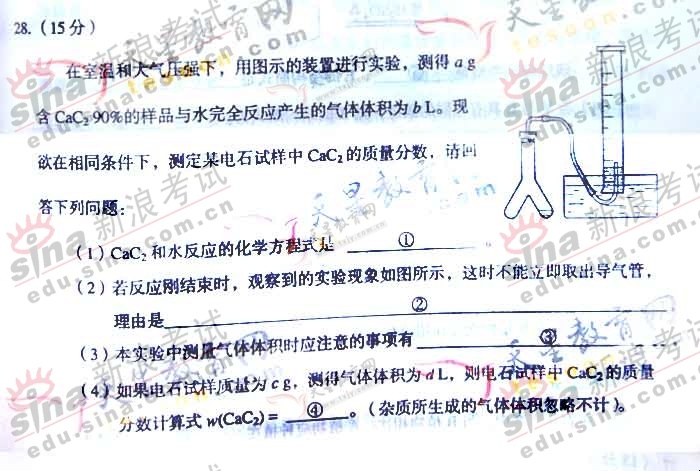 28.（15 分）
在室温和大气压强下，用图示的装置进行实验，测得 a g
含 CaC₂ 90%的样品与水完全反应产生的气体体积为 b L。现
欲在相同条件下，测定某电石试样中 CaC₂ 的质量分数，请回
答下列问题：
（1）CaC₂ 和水反应的化学方程式是 ① 。
（2）若反应刚结束时，观察到的实验现象如图所示，这时不能立即取出导气管，
理由是 ②
（3）本实验中测量气体体积时应注意的事项有 ③
（4）如果电石试样质量为 c g，测得气体体积为 d L，则电石试样中 CaC₂ 的质量
分数计算式 w(CaC₂) = ④ 。（杂质所生成的气体体积忽略不计）。
sina 新浪考试
edu.sina.com.cn
天星教育网
tesoon.com